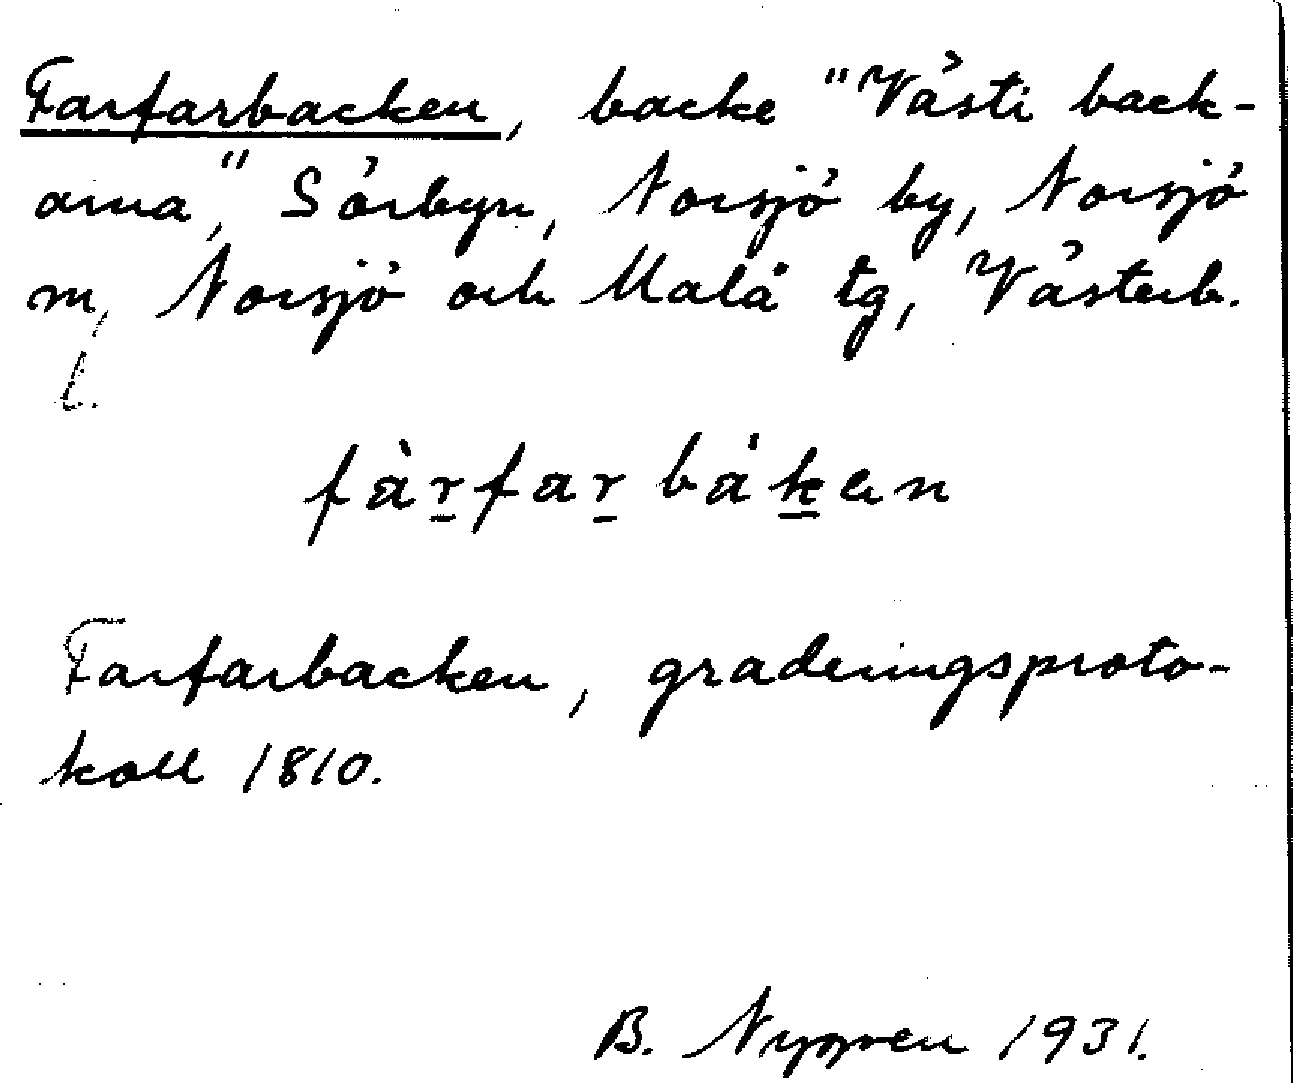 Farfarbacken, backe "Västi back-
arna," Sörbyn, Norsjö by, Norsjö
m, Norsjö och Malå tg, Västerb.
l.
fàr̲far̲ bák̲en
Farfarbacken, graderingsproto-
koll 1810.
B. Nygren 1931.